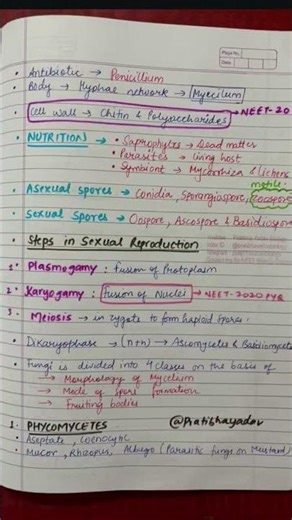 Page No.
Date
• Antibiotic → Penicillium
• Body → Hyphae network → Mycelium
• Cell wall → Chitin & Polysaccharides → NEET-20
• NUTRITION → • Saprophytes → Dead matter
• Parasites → living host
• Symbiont → Mycorrhiza & lichens
motile
• Asexual spores → Conidia, Sporangiospore, Zoospore
• Sexual spores → Oospore, Ascospore & Basidiospo
• Steps in Sexual Reproduction
1. Plasmogamy : Fusion of Protoplasm
2. Karyogamy : Fusion of Nuclei → NEET-2020 PYQ
3. Meiosis → in zygote to form haploid spores.
• Dikaryophase → (n+n) → Ascomycetes & Basidiomycete
• Fungi is divided into 4 classes on the basis of
→ Morphology of Mycelium
→ Mode of spore formation
→ Fruiting bodies
1. PHYCOMYCETES @Pratibhayadav
• Aseptate, coenocytic
• Mucor, Rhizopus, Albugo (Parasitic fungi on Mustard)